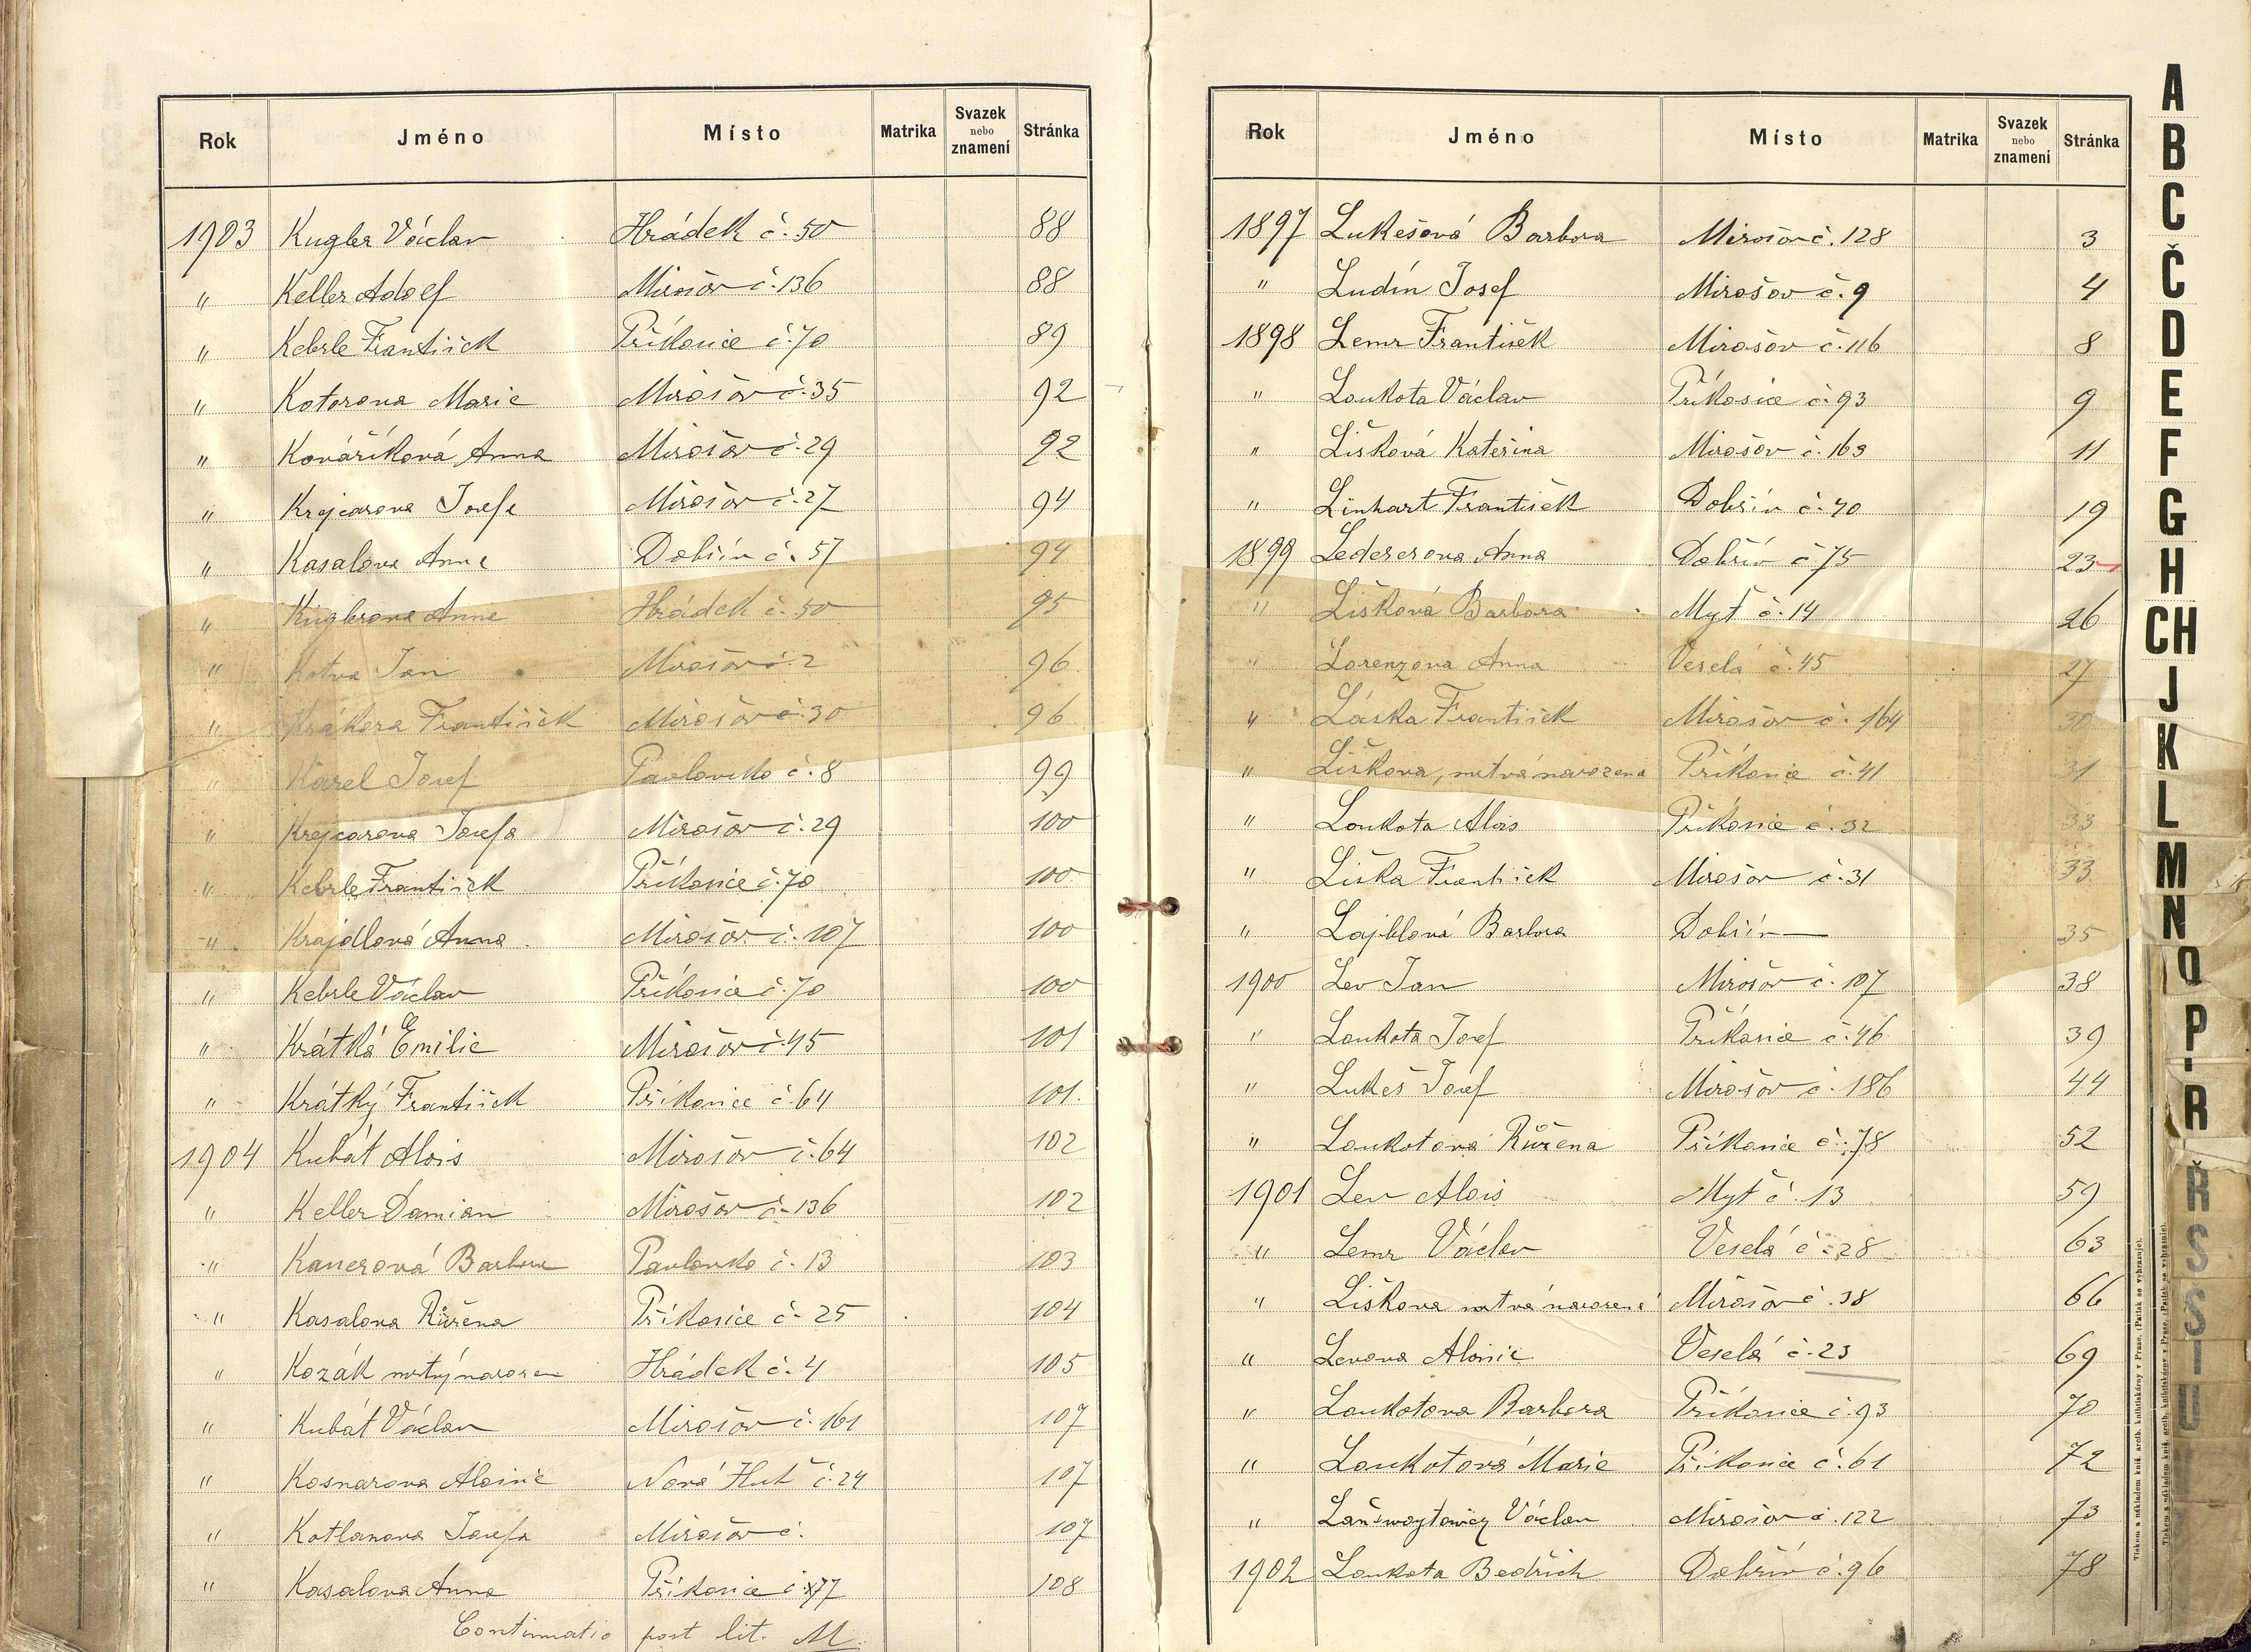 Rok Jméno Místo Matrika Svazek nebo znamení Stránka
1903 Kugler Václav Hrádek č. 50 88
" Keller Adolf Mirošov č. 136 88
" Kebrle František Příkosice č. 70 89
" Kotorova Marie Mirošov č. 35 92
" Kováříková Anna Mirošov č. 29 92
" Krejcarova Josefa Mirošov č. 27 94
" Kasalova Anna Dobřív č. 57 94
" Kuglerova Anna Hrádek č. 50 95
" Kotva Jan Mirošov č. 2 96
" Krákora František Mirošov č. 30 96
" Karel Josef Pavlovsko č. 8 99
" Krejcarova Josefa Mirošov č. 29 100
" Kebrle František Příkosice č. 70 100
" Krajdlová Anna Mirošov č. 107 100
" Kebrle Václav Příkosice č. 70 100
" Krátká Emilie Mirošov č. 45 101
" Krátký František Příkosice č. 64 101.
1904 Kubát Alois Mirošov č. 64 102
" Keller Damian Mirošov č. 136 102
" Kanerová Barbora Pavlovsko č. 13 103
" Kasalova Růžena Příkosice č. 25 104
" Kozák mrtvý narozen Hrádek č. 4 105
" Kubát Václav Mirošov č. 161 107
" Kosnarova Aloisie Nová Huť č. 24 107
" Kotlanova Josefa Mirošov č. 107
" Kasalova Anna Příkosice č. 77 108
Continuatio post lit. M.
Rok Jméno Místo Matrika Svazek nebo znamení Stránka
1897 Lukešová Barbora Mirošov č. 128 3
" Ludín Josef Mirošov č. 9 4
1898 Lemr František Mirošov č. 116 8
" Loukota Václav Příkosice č. 93 9
" Lišková Kateřina Mirošov č. 163 11
" Linhart František Dobřív č. 70 19
1899 Ledererova Anna Dobřív č 75 23
" Lišková Barbora Myť č. 14 26
" Lorenzova Anna Veselá č. 45 27
" Láska František Mirošov č. 164 30
" Liškova, mrtvá narozena Příkosice č. 41 31
" Loukota Alois Příkosice č. 32 33
" Liška František Mirošov č. 31 33
" Lajblová Barbora Dobřív — 35
1900 Lev Jan Mirošov č. 107 38
" Loukota Josef Příkosice č. 46 39
" Lukeš Josef Mirošov č. 186 44
" Loukotova Růžena Příkosice č. 78 52
1901 Lev Alois Myť č. 13 59
" Lemr Václav Veselá č. 28 63
" Liškova mrtvá narozená Mirošov č. 38 66
" Levova Aloisie Veselá č. 23 69
" Loukotova Barbora Příkosice č. 93 70
" Loukotová Marie Příkosice č. 61 72
" Václav Mirošov č. 122 73
1902 Loukota Bedřich Dobřív č. 96 78
A
B
C
Č
D
E
F
G
H
CH
J
K
L
M
N
O
P
R
Ř
S
Š
T
U
Tiskem a nákladem knih. arcib. knihtiskárny v Praze. (Patisk se vyhrazuje).